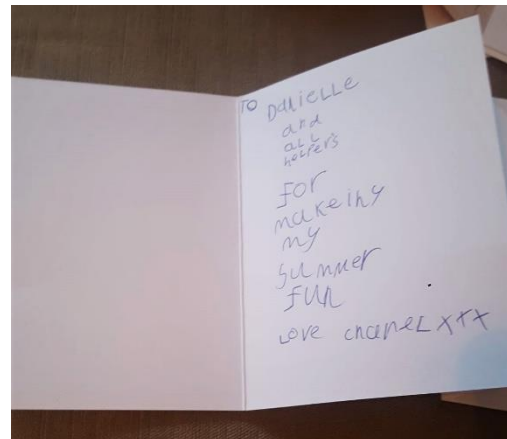 TO Danielle
and
all
helpers
for
makeing
my
summer
fun
Love chanel xxx